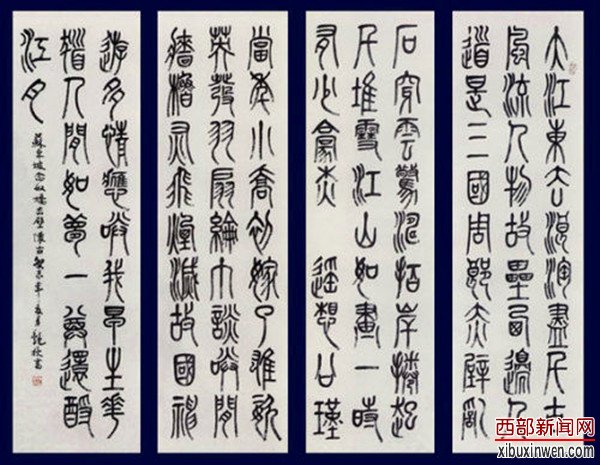 大江東去浪淘盡千古
風流人物故壘西邊人
道是三國周郎赤壁亂
石穿雲驚濤拍岸捲起
千堆雪江山如畫一時
多少豪杰 遥想公瑾
當年小喬初嫁了雄姿
英發羽扇綸巾談笑間
檣櫓灰飛煙滅故國神
遊多情應笑我早生華
髮人間如夢一尊還酹
江月
蘇東坡念奴嬌赤壁懷古癸未年書
西部新闻网
xibuxinwen.com